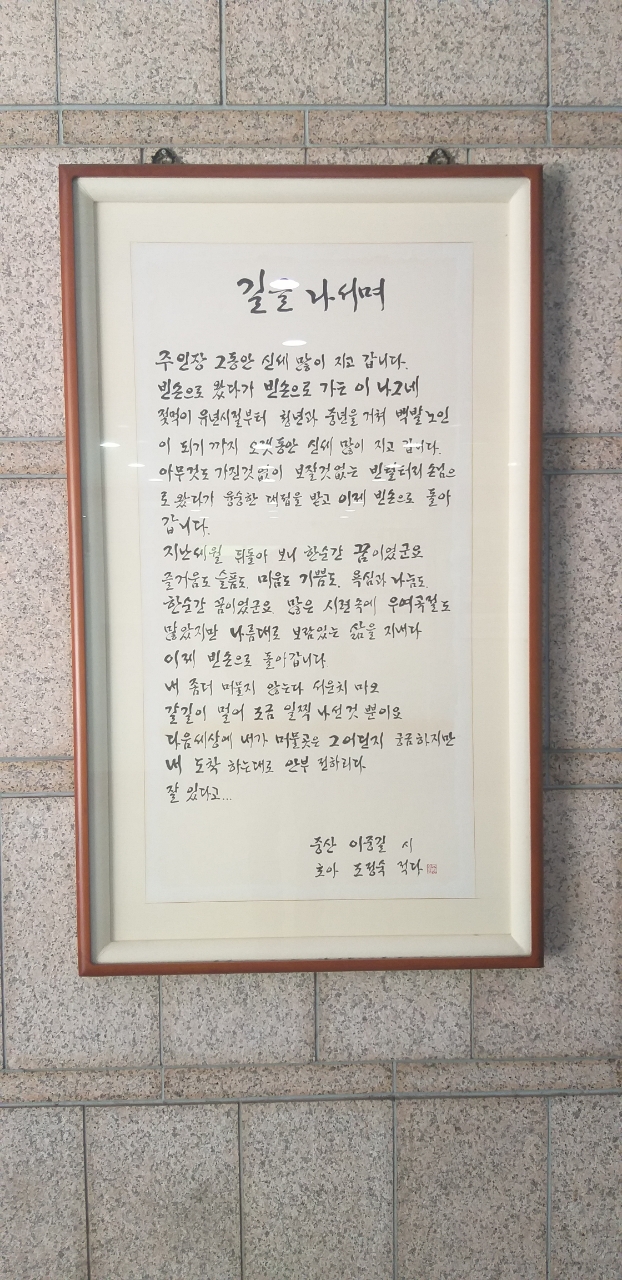 길을 나서며
주인장 그동안 신세 많이 지고 갑니다.
빈손으로 왔다가 빈손으로 가는 이 나그네
젖먹이 유년시절부터 청년과 중년을 거쳐 백발노인
이 되기까지 오랫동안 신세 많이 지고 갑니다.
아무것도 가진것없이 보잘것없는 빈털터리 손님으
로 왔다가 융숭한 대접을 받고 이제 빈손으로 돌아
갑니다.
지난세월 뒤돌아 보니 한순간 꿈이었군요
즐거움도 슬픔도, 미움도 기쁨도, 욕심과 나눔도,
한순간 꿈이었군요 많은 시련속에 우여곡절도
많았지만 나름대로 보람있는 삶을 지내다
이제 빈손으로 돌아갑니다
내 좀더 머물지 않는다 서운치 마오
갈길이 멀어 조금 일찍 나선것 뿐이요
다음세상에 내가 머물곳은 그어딘지 궁금하지만
내 도착 하는대로 안부 전하리다
잘 있다고...
중산 이중길 시
호아 조정숙 적다